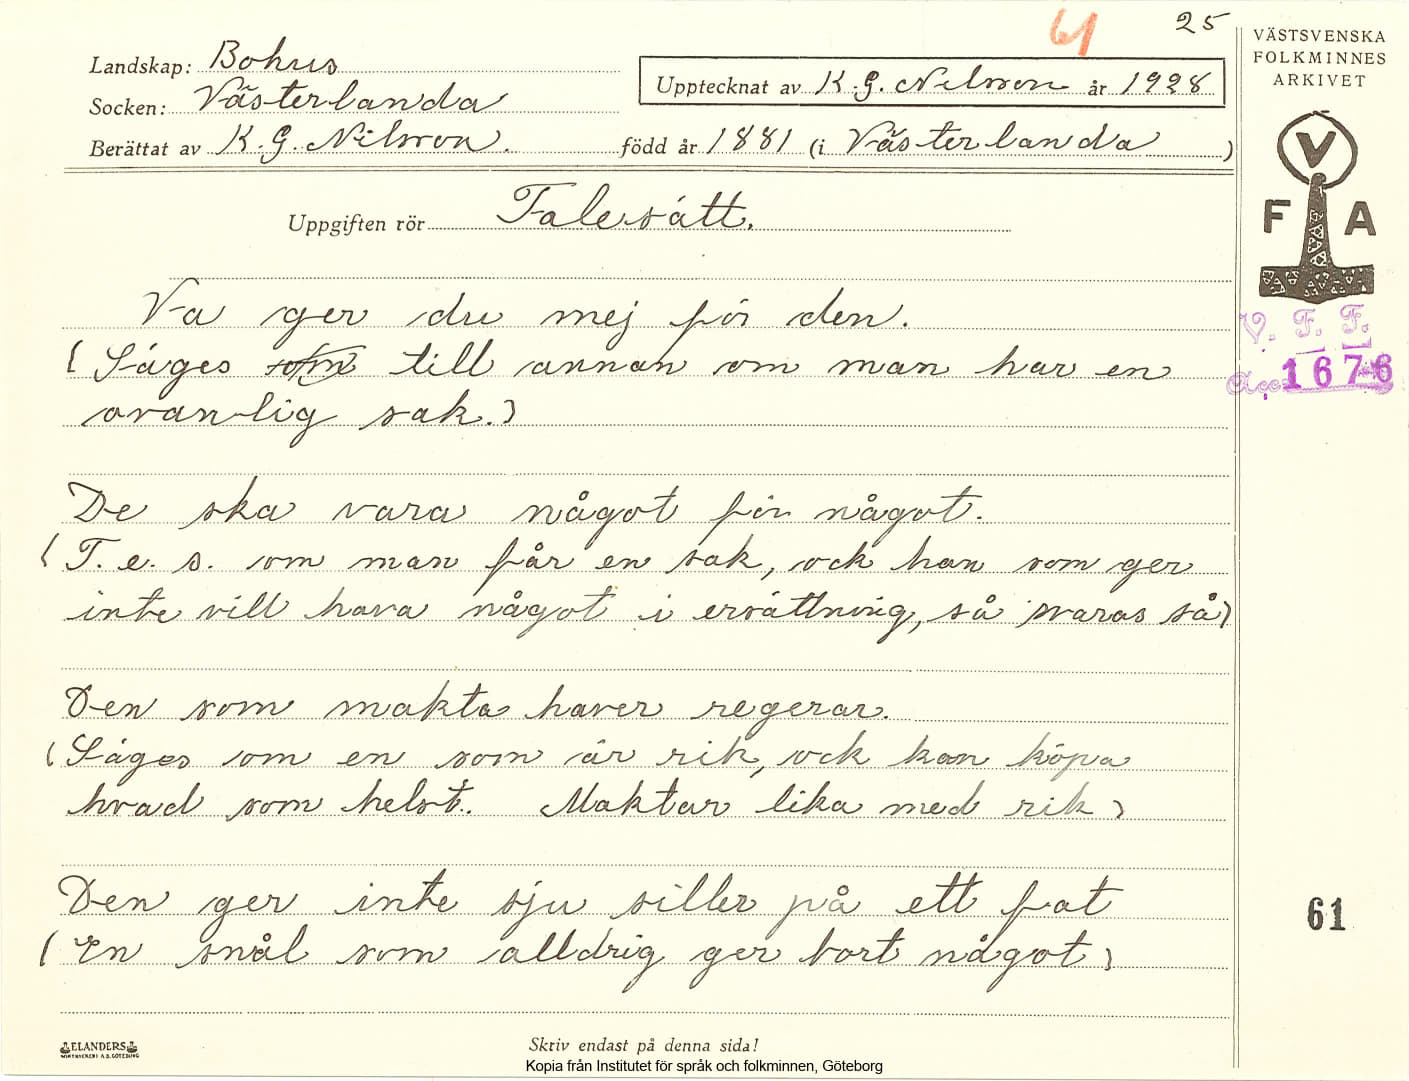 61 25
Landskap: Bohus
Socken: Västerlanda
Upptecknat av K. G. Nilsson år 1928
Berättat av K. G. Nilsson. född år 1881 (i Västerlanda)
Uppgiften rör Talesätt.
VÄSTSVENSKA
FOLKMINNES
ARKIVET
V
F A
V. F. F.
Acc. 1676
Va ger du mej för den.
(Säges som till annan om man har en
ovanlig sak.)
De ska vara något för något.
(T. e. s. om man får en sak, ock han som ger
inte vill hava något i ersättning, så svaras så)
Den som makta haver regerar.
(Säges om en som är rik, ock kan köpa
hvad som helst. Maktar lika med rik)
Den ger inte sju siller på ett fat
(En snål som alldrig ger bort något)
61
ELANDERS
Skriv endast på denna sida!
Kopia från Institutet för språk och folkminnen, Göteborg